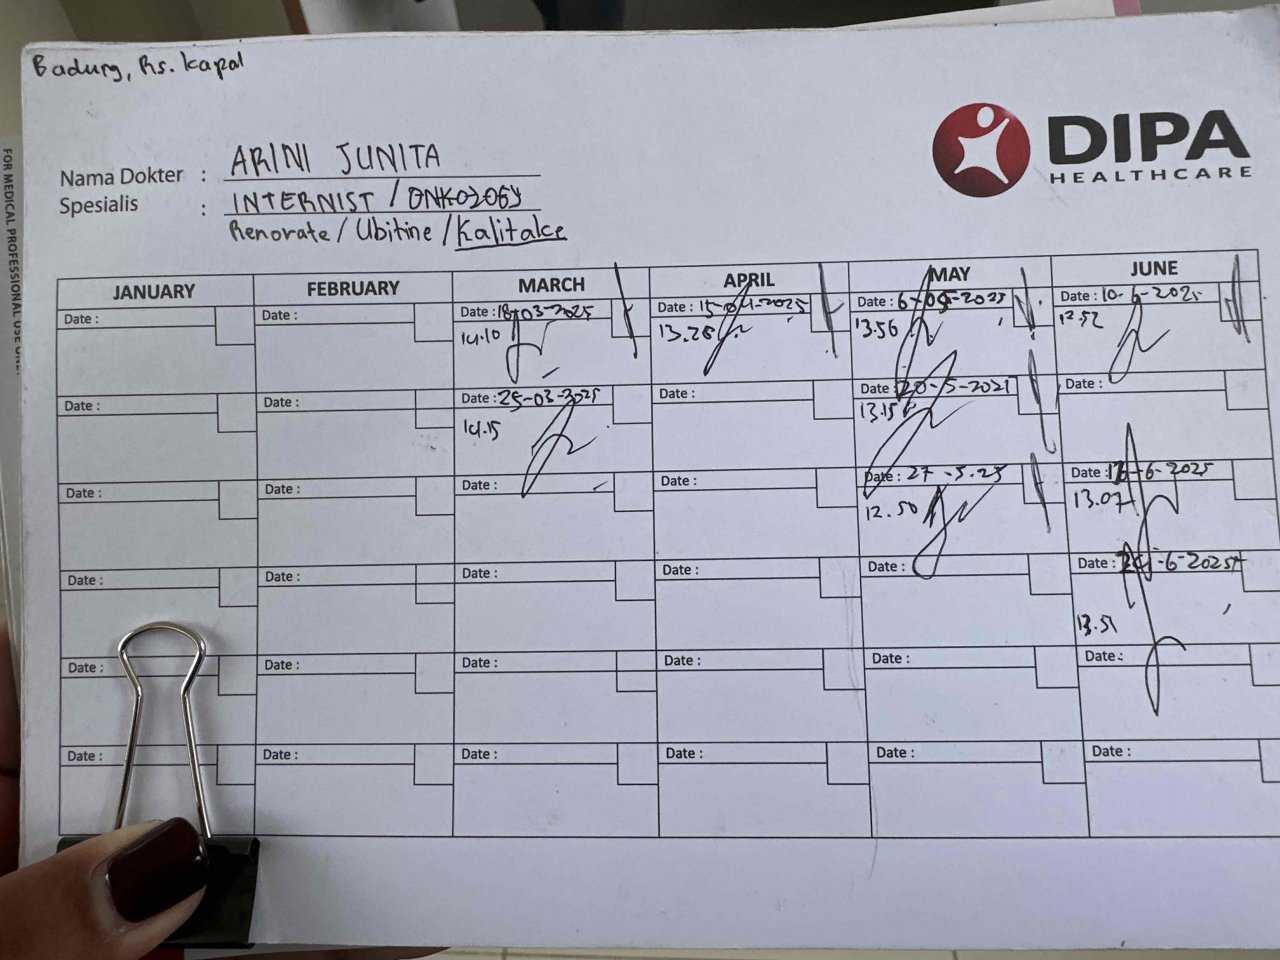 Badung, Rs. Kapal
DIPA
HEALTHCARE
FOR MEDICAL PROFESSIONAL USE ONL
Nama Dokter : ARINI JUNITA
Spesialis : INTERNIST / ONKOLOGY
Renorate / Ubitine / Kalitake
JANUARY FEBRUARY MARCH APRIL MAY JUNE
Date : Date : Date : 18-03-2025 Date : 15-04-2025 Date : 6-05-2025 Date : 10-6-2025
14.10 13.28 13.56 12.52
Date : Date : Date : 25-03-2025 Date : Date : 20-5-2025 Date :
14.15 13.15
Date : Date : Date : Date : Date : 27-5.25 Date : 17-6-2025
12.50 13.07
Date : Date : Date : Date : Date : Date : 24-6-2025
13.51
Date : Date : Date : Date : Date : Date :
Date : Date : Date : Date : Date : Date :